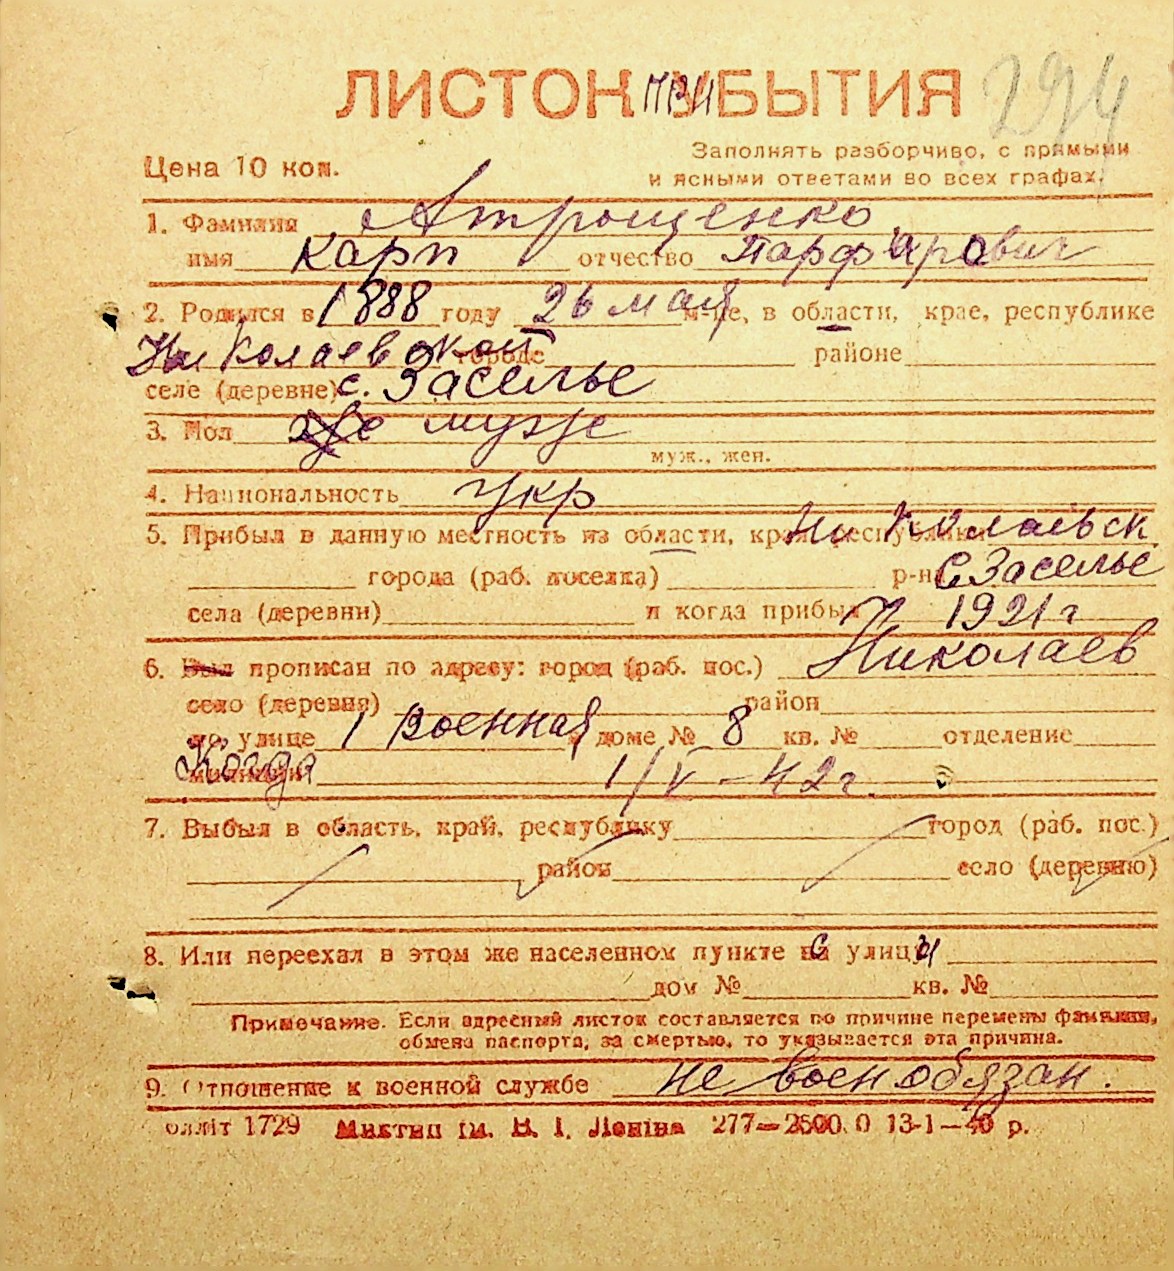 ЛИСТОК ПРИБЫТИЯ 294
Цена 10 коп.
Заполнять разборчиво, с прямыми
и ясными ответами во всех графах.
1. Фамилия Атрощенко
имя Карп отчество Парфирович
2. Родился в 1888 году 26 мая м-це, в области, крае, республике
Николаевской городе районе
селе (деревне) с. Заселье
3. Пол муж
муж., жен.
4. Национальность Укр
5. Прибыл в данную местность из области, края, республики Николаевск
города (раб. поселка) р-на с. Заселье
села (деревни) и когда прибыл 1921 г
6. Был прописан по адресу: город (раб. пос.) Николаев
село (деревня) район
по улице 1 Военная доме № 8 кв. № отделение
милиции Когда 1/V – 42 г.
7. Выбыл в область, край, республику город (раб. пос.)
район село (деревню)
8. Или переехал в этом же населенном пункте с улицы
дом № кв. №
Примечание. Если адресный листок составляется по причине перемены фамилии,
обмена паспорта, за смертью, то указывается эта причина.
9. Отношение к военной службе не военобязан.
олліт 1729 Миктип ім. В. І. Леніна 277—2500.0 13-1—40 р.